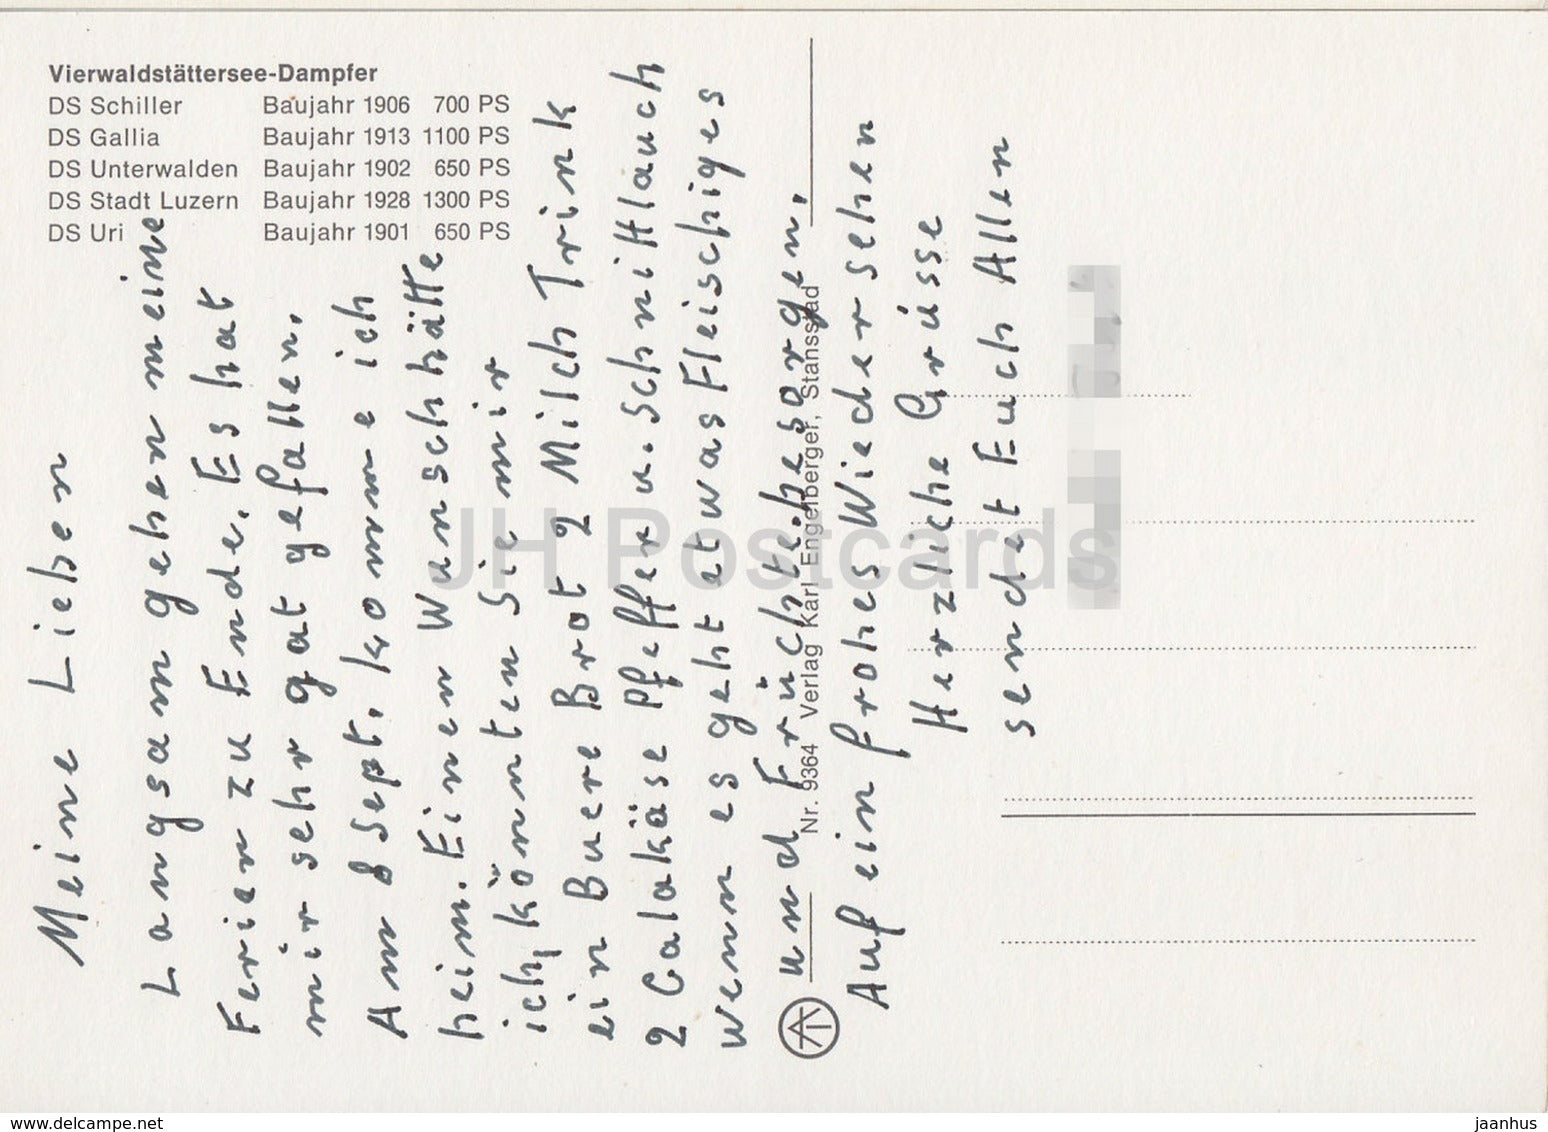 Vierwaldstättersee-Dampfer
DS Schiller Baujahr 1906 700 PS
DS Gallia Baujahr 1913 1100 PS
DS Unterwalden Baujahr 1902 650 PS
DS Stadt Luzern Baujahr 1928 1300 PS
DS Uri Baujahr 1901 650 PS
Meine Lieben
Langsam gehen meine
Ferien zu Ende. Es hat
mir sehr gat gefallen.
Am 8 Sept. komme ich
heim. Einen Wunsch hätte
ich, könnten Sie mir
ein Buere Brot 2 Milch Trink
2 Calakäse Pfeffer u. Schnittlauch
wenn es geht etwas Fleischiges
und Früchte besorgen.
Auf ein frohes Wiedersehen
Herzliche Grüsse
sendet Euch Allen
Nr. 9364 Verlag Karl Engelberger, Stansstad
JH Postcards
www.delcampe.net
jaanhus